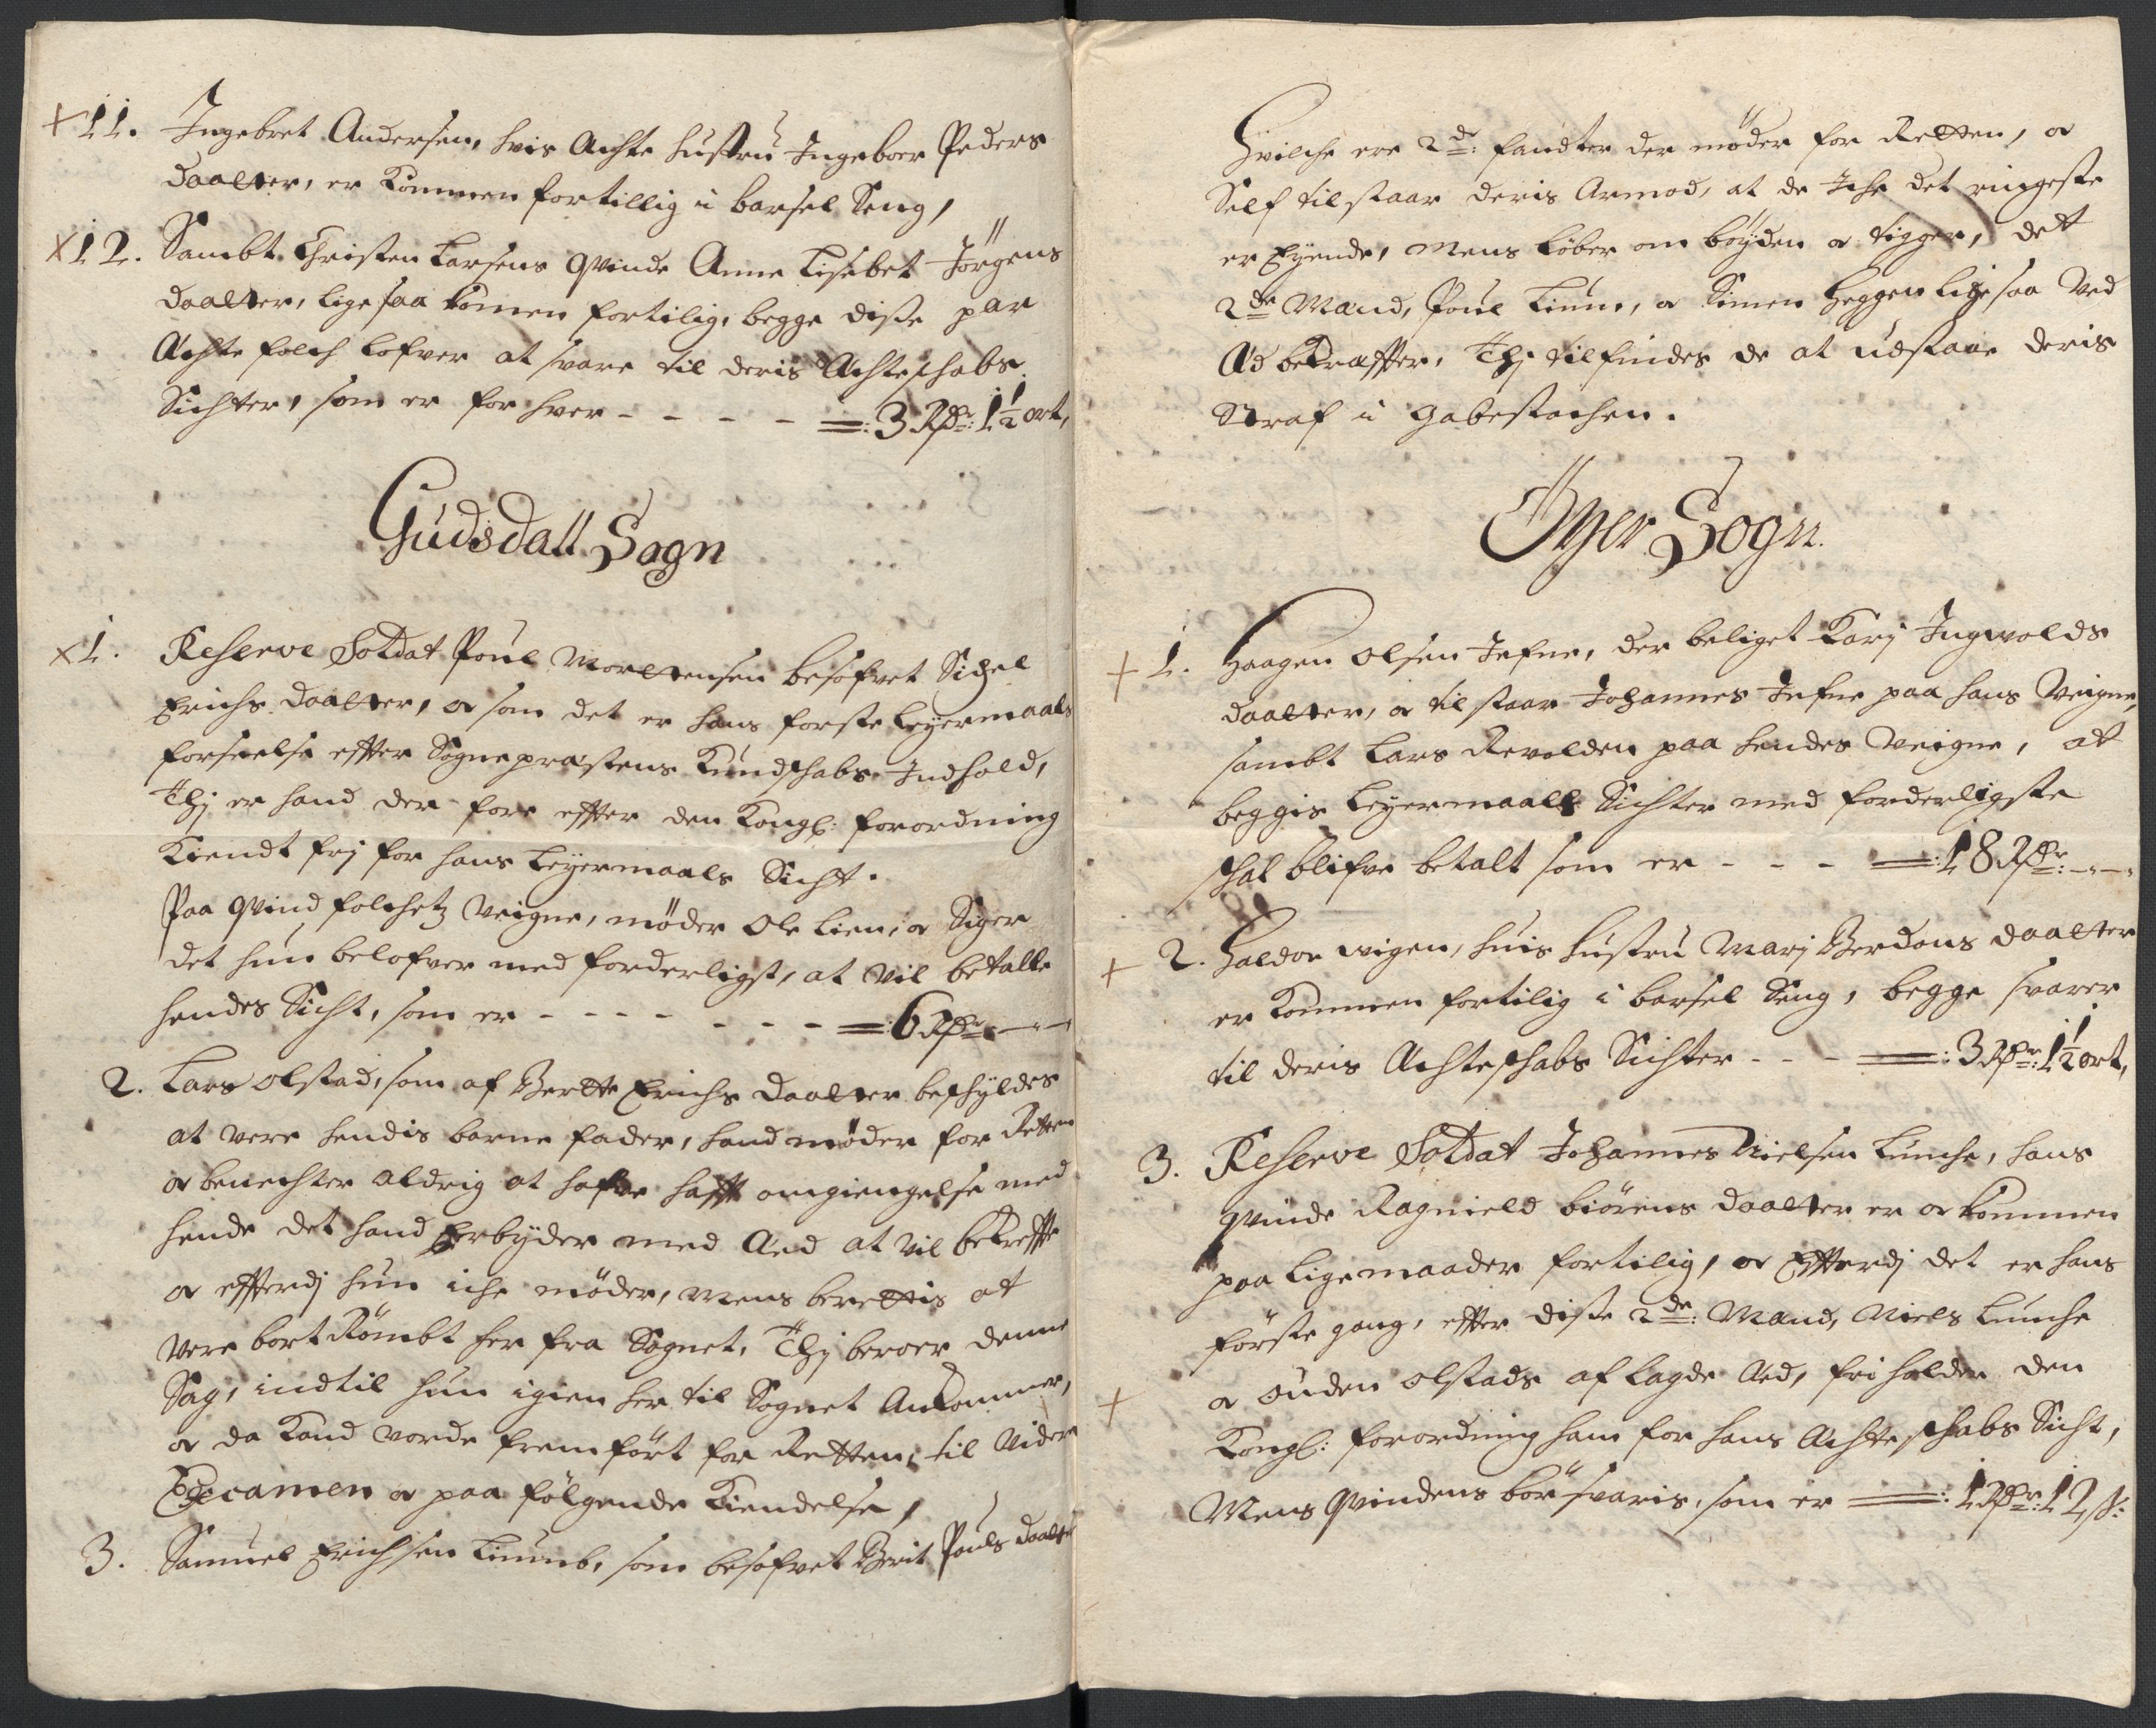 + 11. Ingebret Andersen, hvis Achte hustrü Ingeboer Peders
daatter, er kommen fortillig i barsel Seng,
x 12. Sambt Christen Larsens qvinde Anne Lisebet Jörgens
daatter, lige saa komen fortilig, begge disse par
Achte folch lofver at svare til deris Achteschabs
Sichter, som er for hver - - - - =: 3 Rdr: 1½ ort,
Gudsdall Sogn
x 1. Reserve Soldat Poül Mortensen besofvet Sichel
Erichs daatter, og som det er hans forste Leyermaals
forseelse effter Sogneprestens Kundschabs Indhold,
Thj er hand der fore effter den Kongl: forordning
Kiendt frj for hans Leyermaals Sicht.
Paa qvind folchetz Veigne, möder Ole Lien, og Siger
det hün belofver med forderligst, at vil betalle
hendes Sicht, som er - - - - - - - =: 6 Rdr: - - -
2. Lars Olstad, som af Berthe Erichs daatter beschyldes
at vere hendis barne fader, hand möder for Retten
og benechter aldrig at hafve hafft omgiengelse med
hende det hand Erbyder med Aed at vil bekreffte
og effterdj hün iche möder, Mens berettis at
vere bort Römbt her fra Sognet, Thj beroer denne
Sag, indtil hün igien her til Sognet Ankommer,
og da Kand vorde fremfört for Retten, til Vidre
Excamen og paa fölgende Kiendelse,
3. Samuel Erichsen Liümb, som besofvet Berit Pouls daatter
Hvilche ere 2de: fandter der möder for Retten, og
Self tilstaar deris Armod, at de Iche det ringeste
er Eyende, Mens löber om böyden og tigger, det
2de Mand, Poül Liüm, og Simen Heggen ligesaa Ved
Æd bekraffter, Thj tilfindes de at udstaae deris
Straf i gabestochen.
Öyer Sogn.
+ 1. Haagen Olsen Jefne, der beliget Karj Ingwolds
daatter, og tilstaar Johannes Jefne paa hans Veigne,
sambt Lars Revolden paa hendes Veigne, at
beggis Leyermaals Sichter med forderligste
schal blifve betalt som er - - - =: 18 Rdr: - - -
+ 2. Haldor wigen, huis hustrü Marj Berdons daatter
er Kommen fortilig i barsel Seng, begge svarer
til deris Achteschabs Sichter - - - =: 3 Rdr: 1½ ort,
3. Reserve Soldat Johannes Nielsen Lünche, hans
qvinde Ragnield biörens daatter er og kommen
paa lige maader fortilig, og Effterdj det er hans
förste gang, effter disse 2de: Mand, Niels Lünche
+ og Ouden Olstads aflagde Aed, fri holder den
Kongl: forordning ham for hans Achteschabs Sicht,
Mens qvindens bör svaris, som er =: 1 Rdr: 12 s: